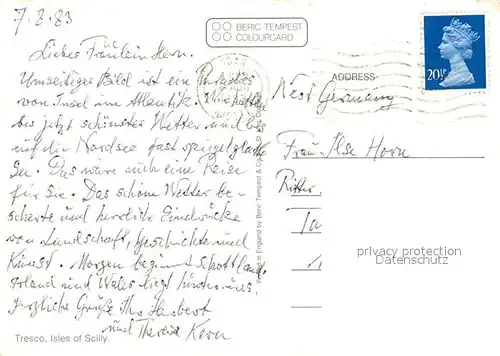 7.8.83
BERIC TEMPEST
COLOURCARD
Liebes Fräulein Horn.
Umseitiges Bild ist ein Paradies
von Insel im Atlantik. Wir hatten
bis jetzt schönstes Wetter und bis
auf die Nordsee fast spiegelglatte
See. Das wäre auch eine Reise
für Sie. Das schöne Wetter be-
scherte uns herrliche Eindrücke
von Landschaft, Geschichte und
Kunst. Morgen beginnt Schottland.
Irland und Wales liegt hinter uns.
Herzliche Grüße Ihr Herbert
und Theresa Kern
Tresco, Isles of Scilly.
Printed in England by Beric Tempest & Co
ADDRESS
20½P
West Germany
Frau Ilse Horn
Ritter
privacy protection
oldthing.de